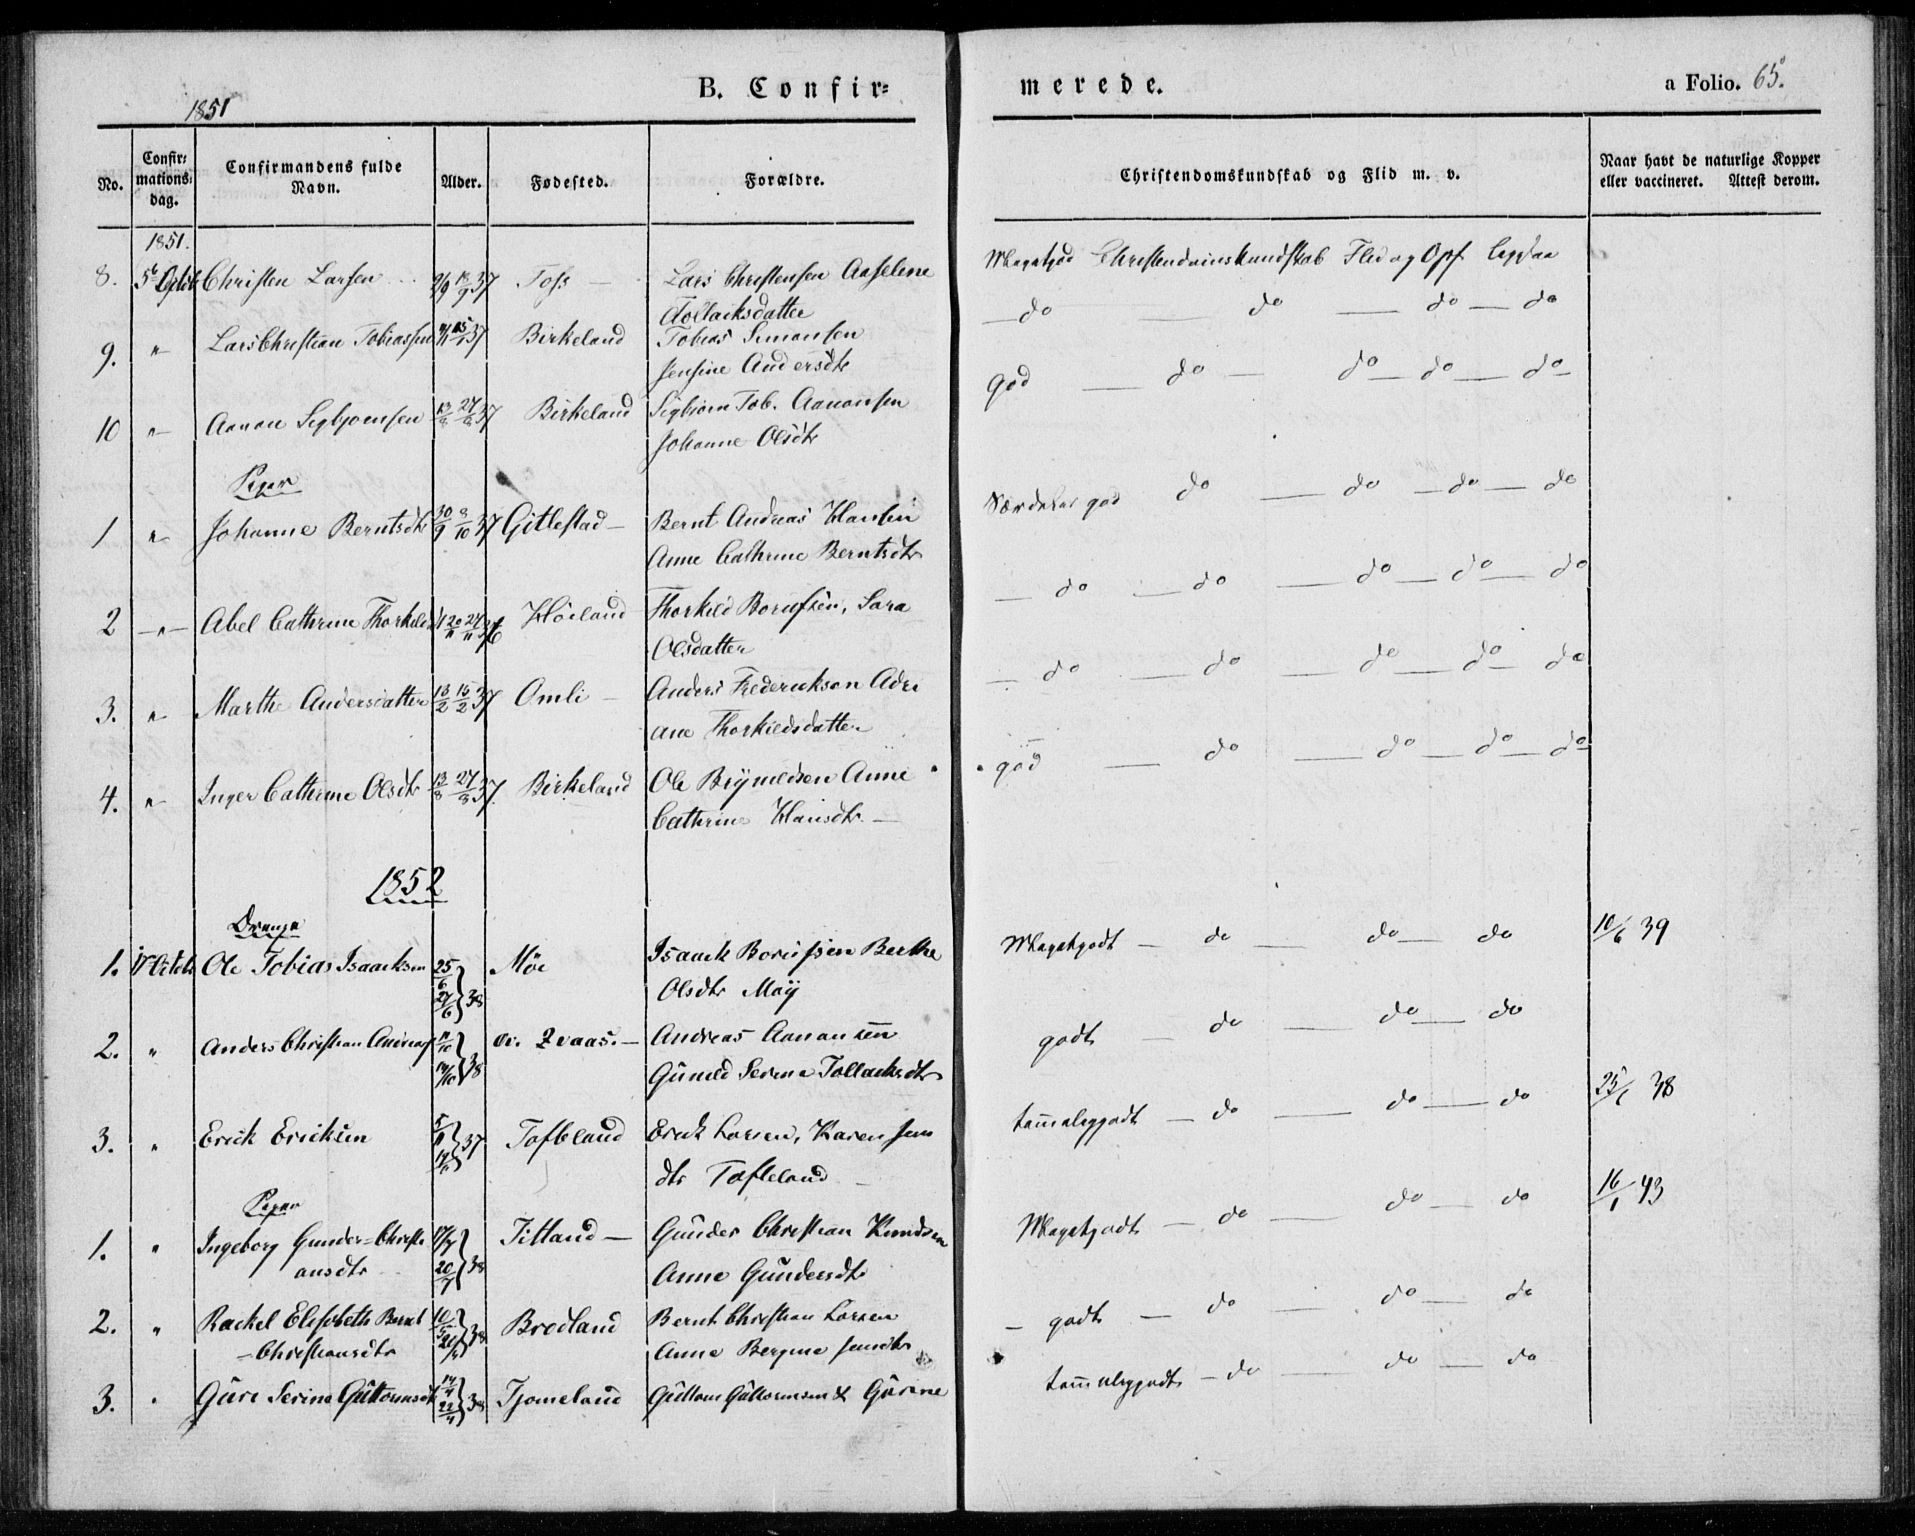 1851
B. Confir=
merede.
a Folio. 65.
No.
Confir=
mations=
dag.
Confirmandens fulde
Navn.
Alder.
Fødested.
Forældre.
Christendomskundskab og Flid m. v.
Naar havt de naturlige Kopper
eller vaccineret. Attest derom.
1851.
8. 5t Christen Larsen 37 Foss — Lars Christensen Aaselene
Tollacksdatter
Christendomskundskab Flid og Opf
— do — do — do — do
9. " Lars Christian Tobiassen 37 Birkeland Tobias Simonsen
Jensine Andersdtr
God — do — do — do — do
10 " Aanon Sigbjørnsen 37 Birkeland Sigbjørn Tob. Aanonsen
Johanne Olsdtr
Piger
1 " Johanne Berntsdtr 30/9 37 Gitlestad — Bernt Andreas Hansen
Anne Cathrine Berntsdtr
god do — do — do — do
2 — " — Abel Cathrine 36 Høiland Thorkild , Sara
Olsdatter
— do — do — do — do — do
3. " Marthe Andersdatter 13/2 15/2 37 Omli — Anders Frederiksen Adri
ane Thorkildsdatter
— do — do — do — do — do
4. " Inger Cathrine Olsdtr 13/8 27/8 37. Birkeland Ole Brynildsen Anne
Cathrine Hansdtr. —
god — do — do — do — do
1852
Drenge
1. Ole Tobias Isaacksen 25/6 27/6 38 Møe Isaack Berthe
Olsdtr Møy
Megetgodt — do — do — do 10/6 39
2. " Anders Christian 38 Andreas Aanonsen
Gunild Serine Tollacksdtr
godt — do — do — do
3. " Erick Ericksen 37 Tofteland Erick Larsen, Karen Jens
dtr Tofteland —
temmeliggodt — do — do — do 38
Piger
1. " Ingeborg Gunder=Christi
ansdtr 38 Titland — Gunder Christian Knudsen
Anne Gundersdtr
Megetgodt — do — do — do 16/1 43
2. " Rackel Elisabeth Bernt
-Christiansdtr 38 Brodland Bernt Christian Larsen
Anne Jensdtr
— godt — do — do — do
3. " Guri Serine Guttormsdtr 38 Tjomeland Guttorm Guttormsen & Gurine
temmeliggodt — do — do — do